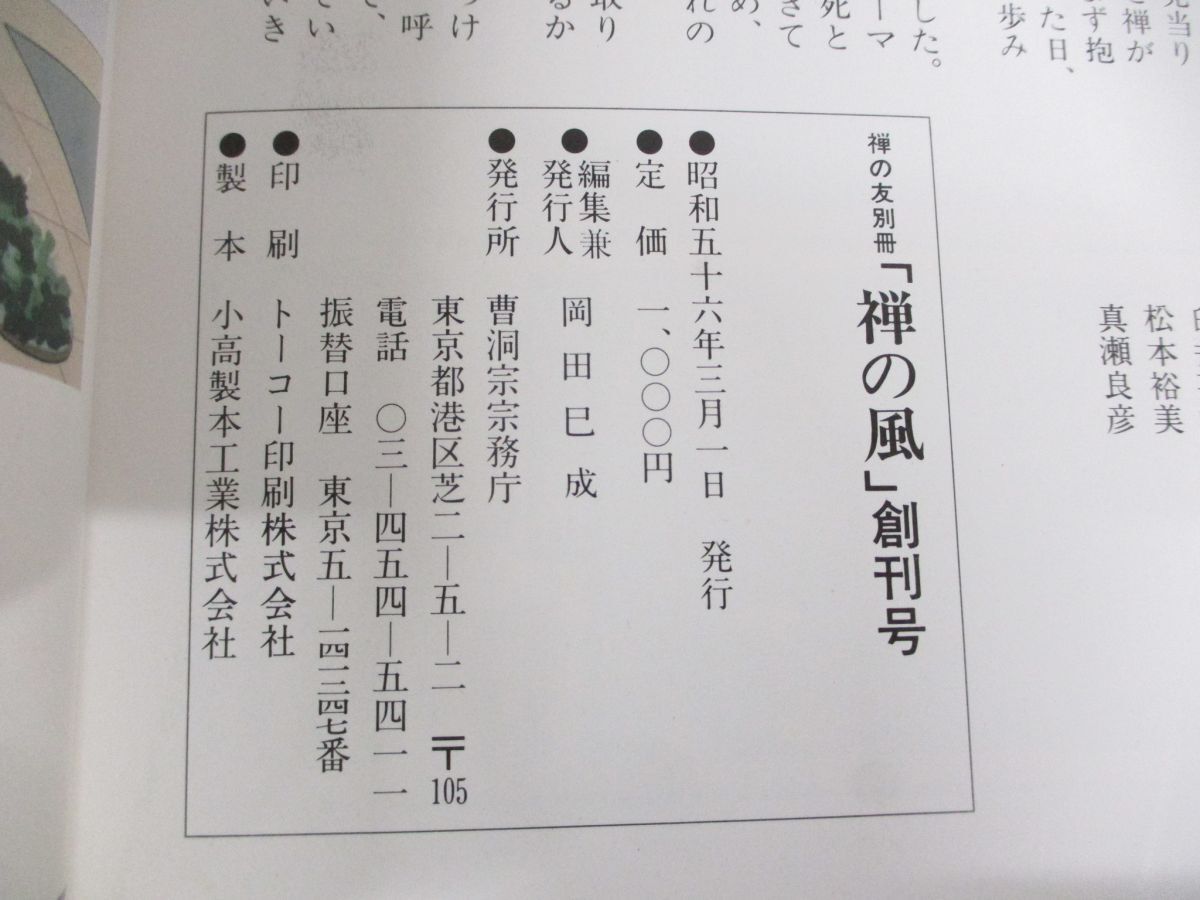 見当り
と禅が
まず抱
た日、
歩み
した。
ーマ
死と
きて
め、
れの
取り
るか
つけ
、呼
てい
いき
松本裕美
真瀬良彦
禅の友別冊「禅の風」創刊号
●昭和五十六年三月一日 発行
●定 価 一、〇〇〇円
●編集兼
発行人 岡田巳成
●発行所 曹洞宗宗務庁
東京都港区芝二―五―二 〒105
電話 〇三―四五四―五四一一
振替口座 東京五―一四三四七番
●印 刷 トーコー印刷株式会社
●製 本 小高製本工業株式会社